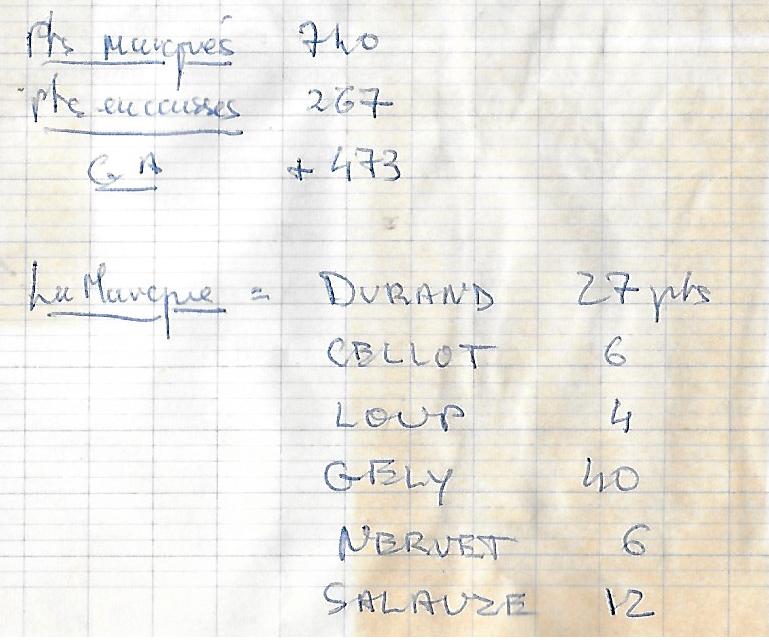 Pts marqués 740
Pts encaissés 267
GA + 473
La Marque = DURAND 27 pts
CELLOT 6
LOUP 4
GELY 40
NERVET 6
SALAUZE 12